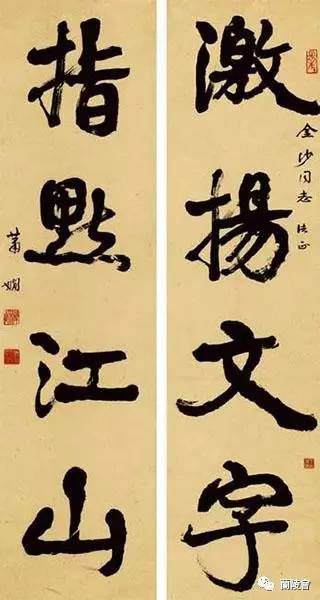 激揚文字
金沙同志
法正
指點江山
蕭嫻
蘭陵會